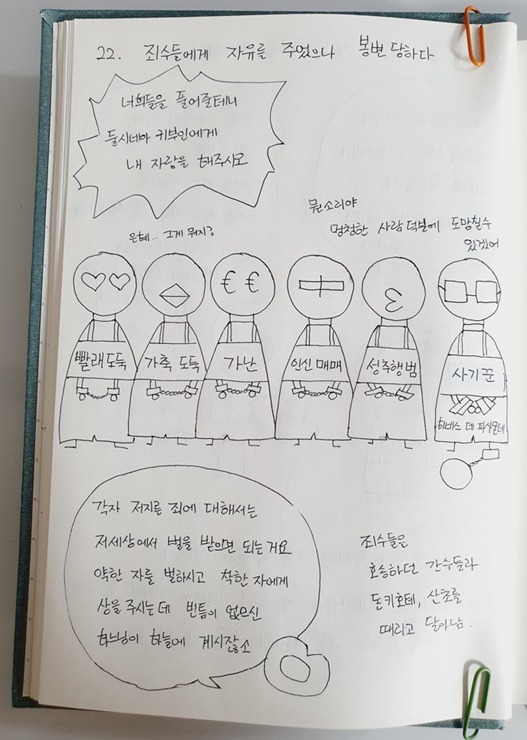 22. 죄수들에게 자유를 주었으나 봉변 당하다
너희들을 풀어줄테니
둘시네아 귀부인에게
내 자랑을 해주시오
뭔소리야
멍청한 사람 덕분에 도망칠수
있겠어
은혜.. 그게 뭐지?
빨래도둑
가축 도둑
가난
인신매매
성추행범
사기꾼
히네스 데 파사몬테
각자 저지른 죄에 대해서는
저세상에서 벌을 받으면 되는거요
악한 자를 벌하시고 착한 자에게
상을 주시는데 빈틈이 없으신
하느님이 하늘에 계시잖소
죄수들은
호송하던 간수들과
돈키호테, 산초를
때리고 달아남.